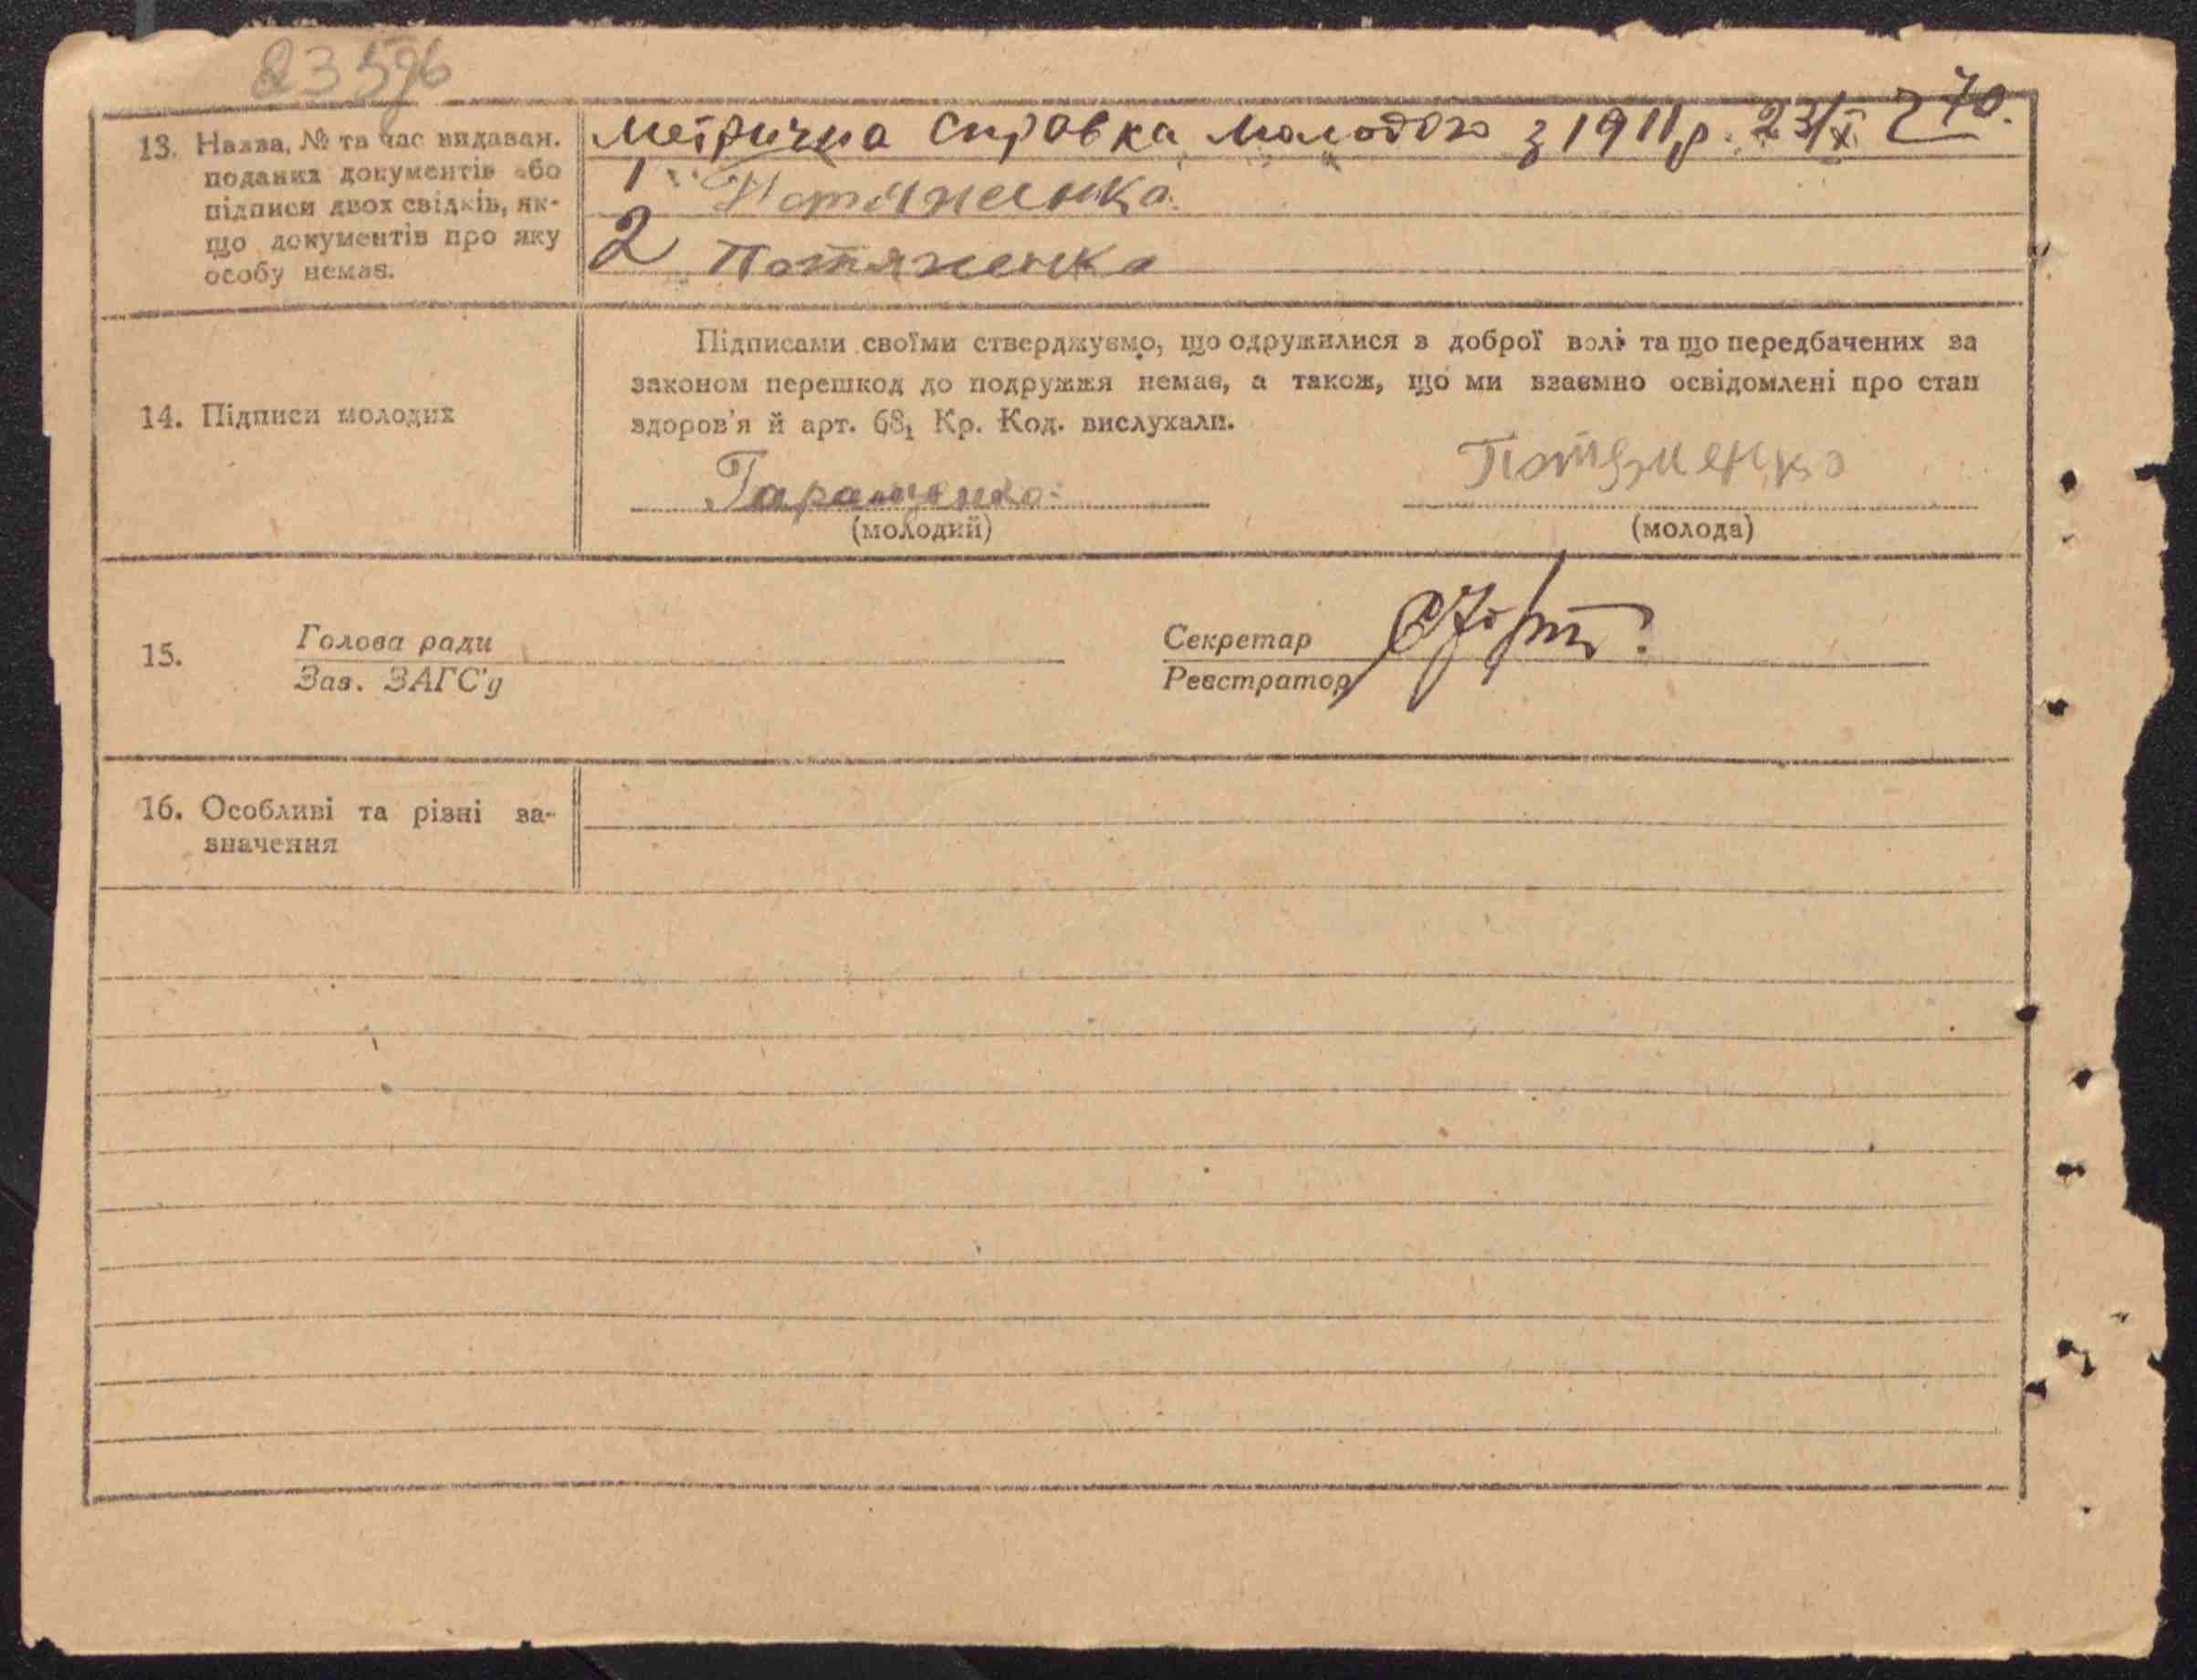 23596
13. Назва, № та час видаван. поданих документів або підписи двох свідків, якщо документів про яку особу немає.
Метрична справка молодого з 1911 р. 23/X
1
2 Потяженко
Підписами своїми стверджуємо, що одружилися з доброї волі та що передбачених за
законом перешкод до подружжя немає, а також, що ми взаємно освідомлені про стан
14. Підписи молодих
здоров'я й арт. 68₁ Кр. Код. вислухали.
Гаращенко
(молодий)
(молода)
15.
Голова ради
Зав. ЗАГС'у
Секретар
Реєстратор
16. Особливі та різні зазначення